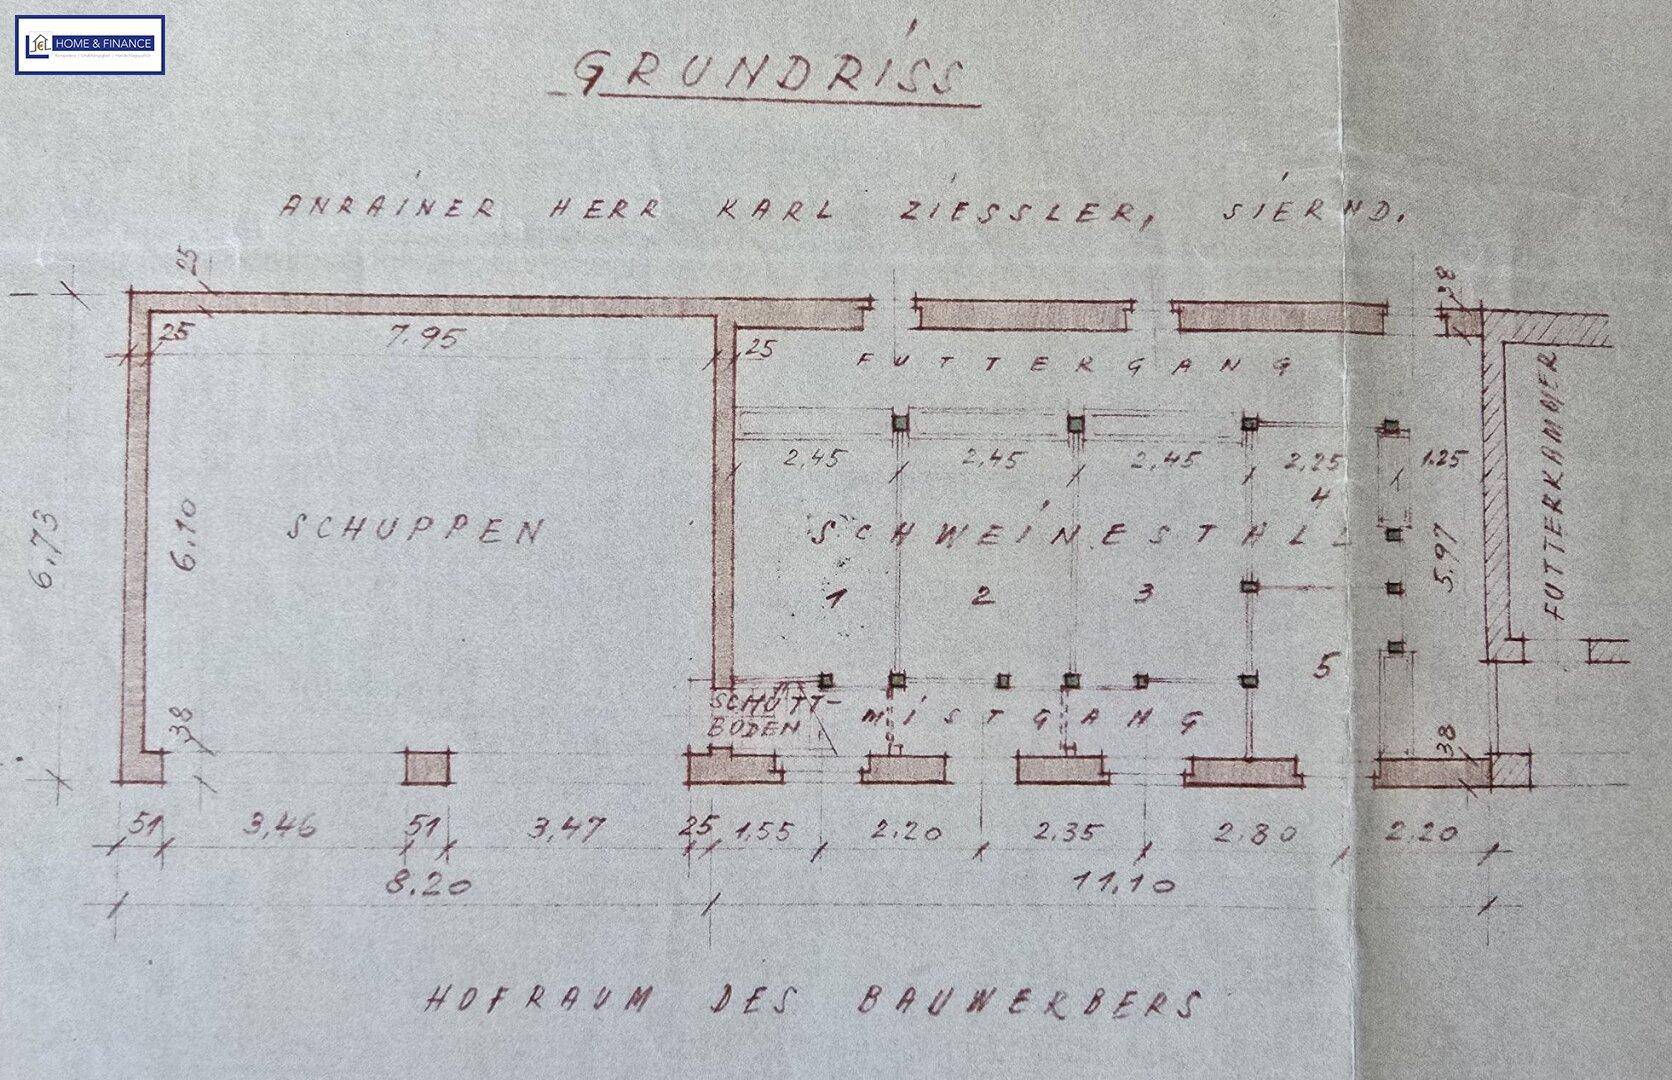 HOME & FINANCE
GRUNDRISS
ANRAINER HERR KARL ZIESSLER, SIERND.
25
38
25
7.95
25
FUTTERGANG
2,45
2,45
2,45
2,25
1.25
4
SCHUPPEN
SCHWEINESTALL
6,73
6,10
5,97
FUTTERKAMMER
1
2
3
5
SCHÜTT-
BODEN
MISTGANG
38
38
51
3,46
51
3,47
25
1,55
2.20
2.35
2.80
2.20
8.20
11.10
HOFRAUM DES BAUWERBERS